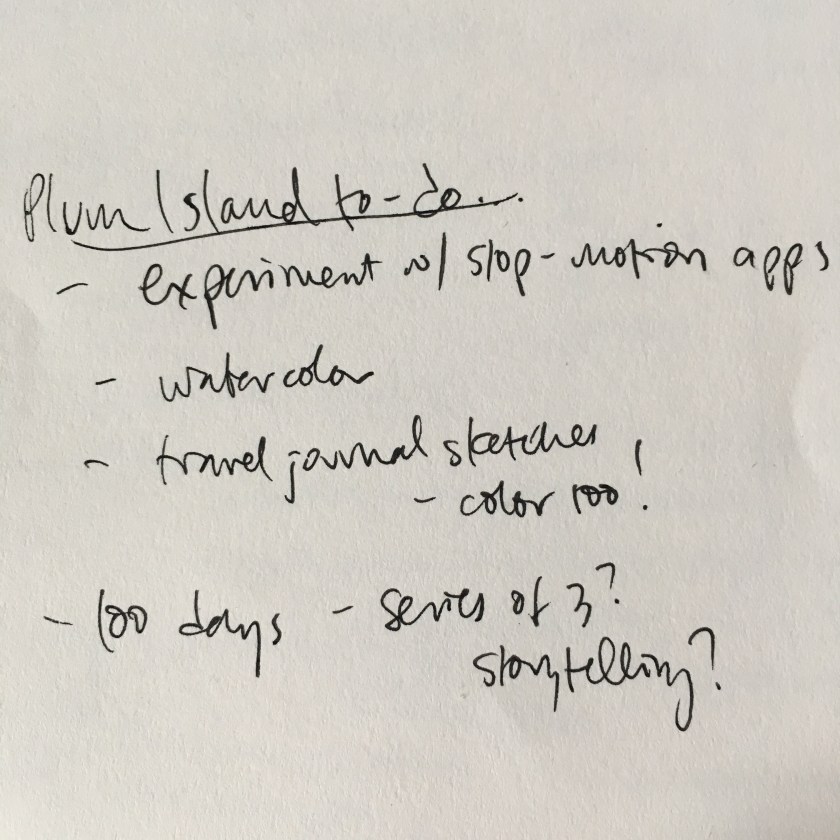 Plum Island to-do...
- experiment w/ stop-motion apps
- watercolor
- travel journal sketches
- color too!
- 100 days - series of 3?
storytelling?